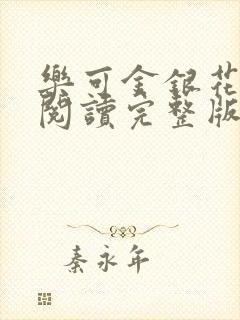 樂可金銀花
閱讀完整版
秦永年